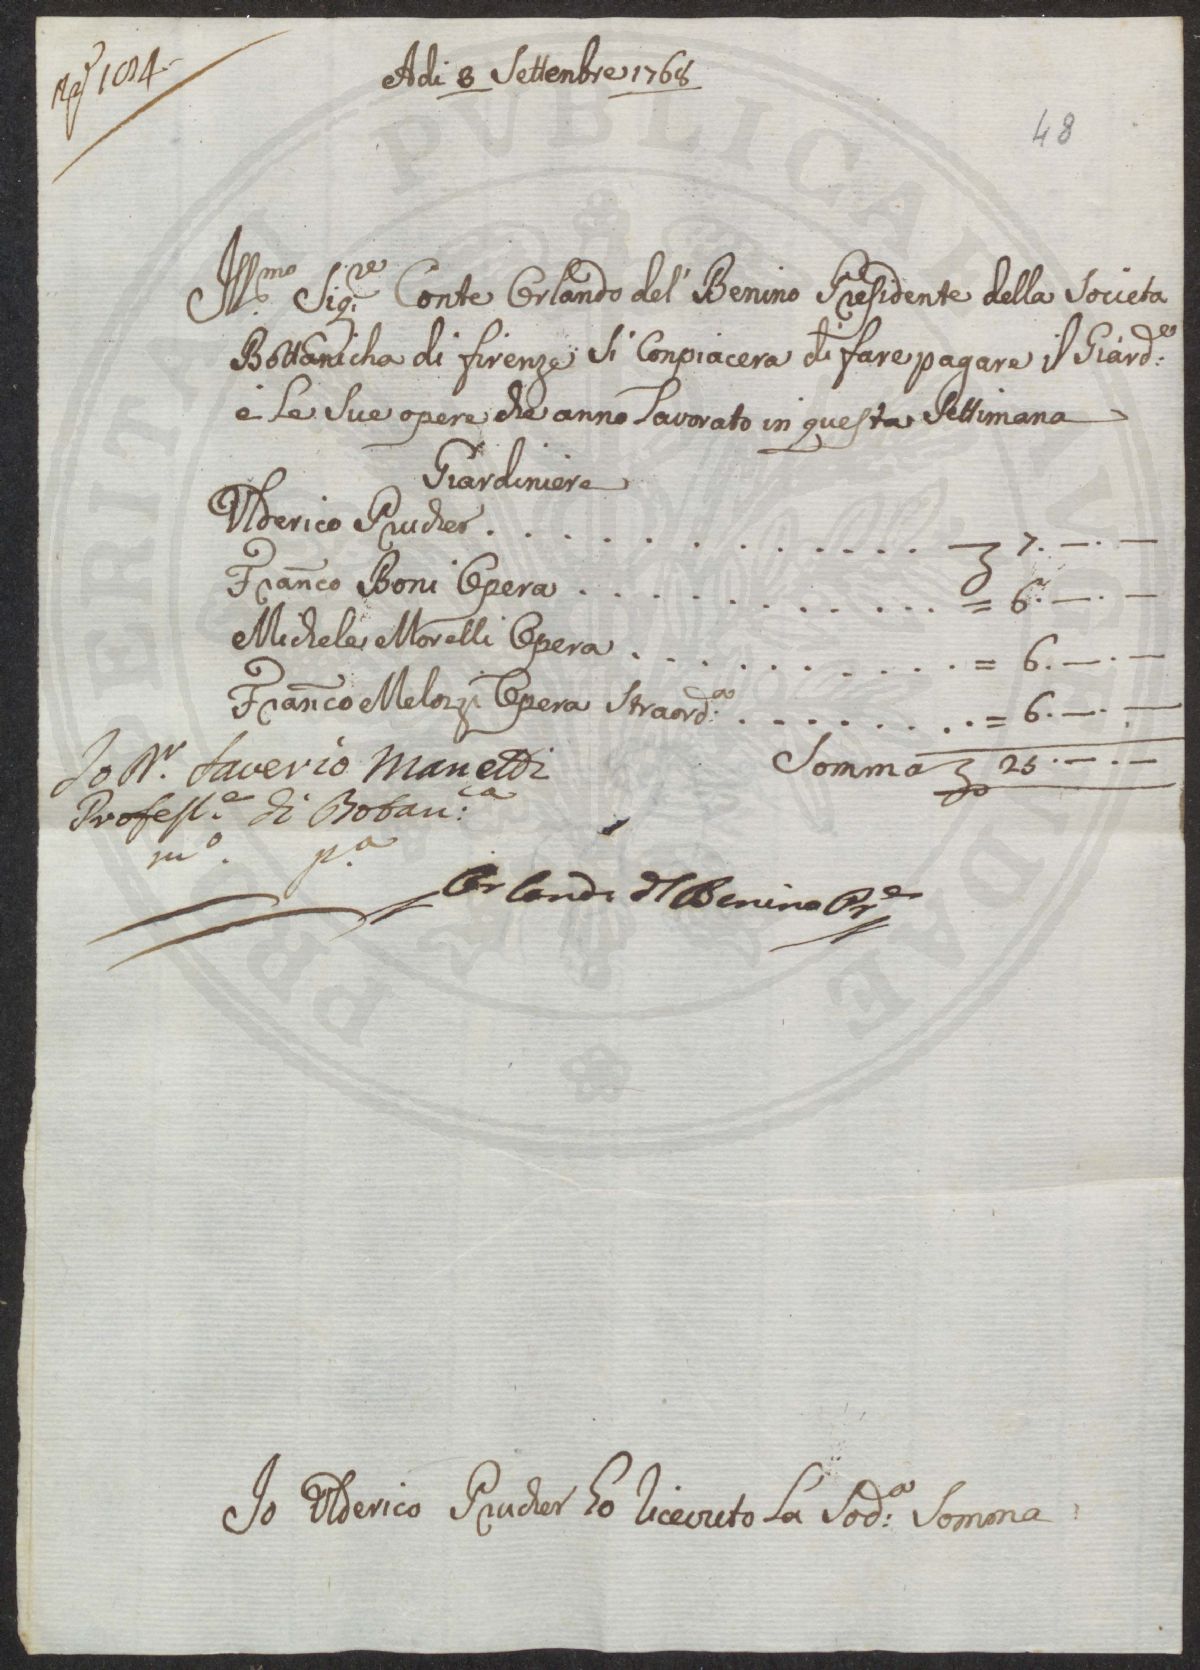 Adi 8 Settenbre 1768
48
Ill.mo Sig.re Conte Orlando del Benino Presidente della Societa
Bottanicha di firenze Si Conpiacera di fare pagare il Giard:e
e Le Sue opere che anno Lavorato in questa Settimana
Giardiniere
Ulderico Prucher . . . . . . . . . . . 7. — . —
Franco Boni Opera . . . . . . . . . . = 6. — . —
Michele Morelli Opera . . . . . . . . . = 6. — . —
Franco Melozzi Opera Straord:a . . . . . . . = 6. — . —
Somma 25 . — . —
Io Dr. Saverio Manetti
Profess.e di Botan:ca
m.o p.a
Orlando del Benino Pr.e
Io Ulderico Prucher ho ricevuto La Sod:a Somma
PERITATI PUBLICAE AVGENDAE